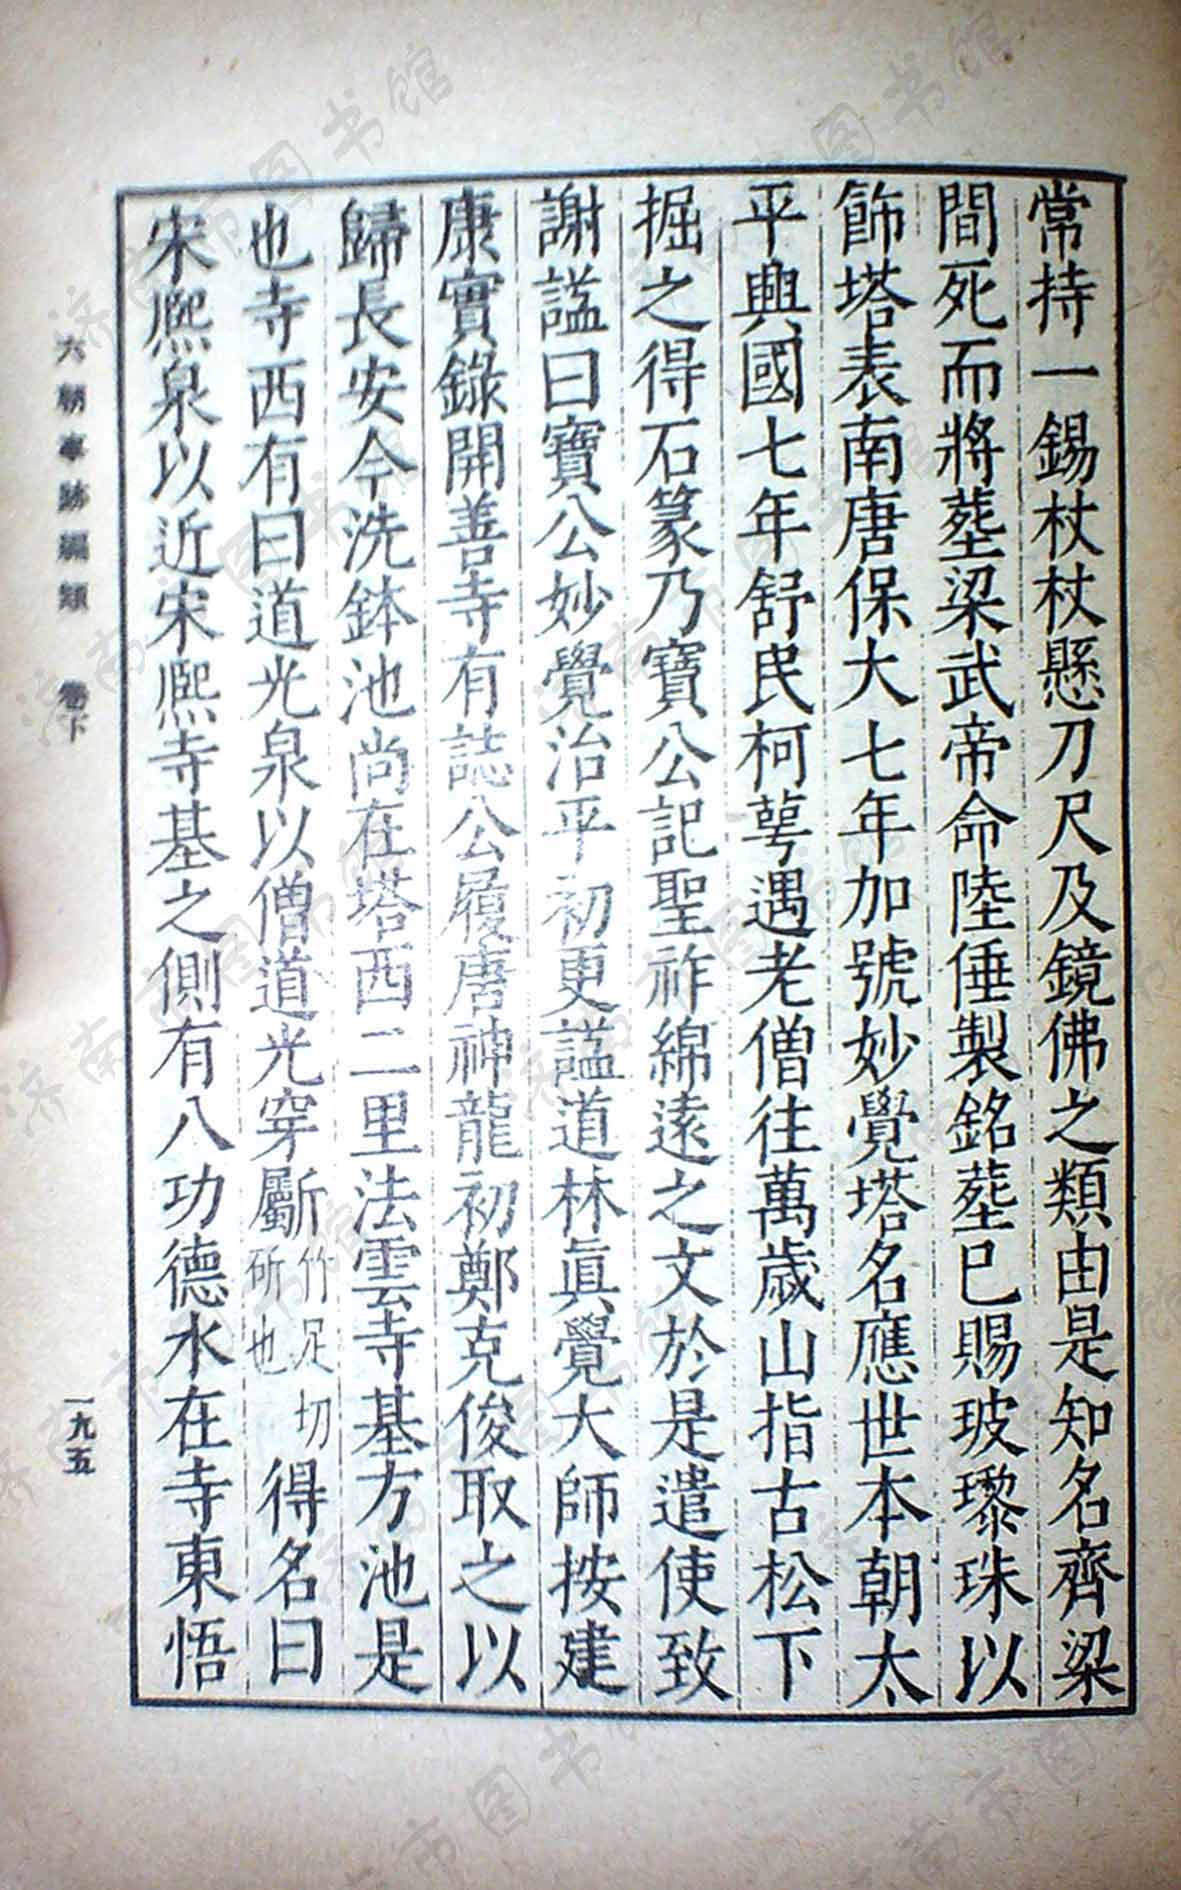 常持一錫杖杖懸刀尺及鏡佛之類由是知名齊梁
間死而將塟梁武帝命陸倕製銘塟已賜玻瓈珠以
飾塔表南唐保大七年加號妙覺塔名應世本朝太
平興國七年舒民柯萼遇老僧往萬歲山指古松下
掘之得石篆乃寶公記聖祚綿遠之文於是遣使致
謝謚曰寶公妙覺治平初更謚道林眞覺大師按建
康實錄開善寺有誌公履唐神龍初鄭克俊取之以
歸長安今洗鉢池尚在塔西二里法雲寺基方池是
也寺西有曰道光泉以僧道光穿斸竹足切斫也得名曰
宋熈泉以近宋熈寺基之側有八功德水在寺東悟
六朝事跡編類 卷下
一九五
济南市图书馆